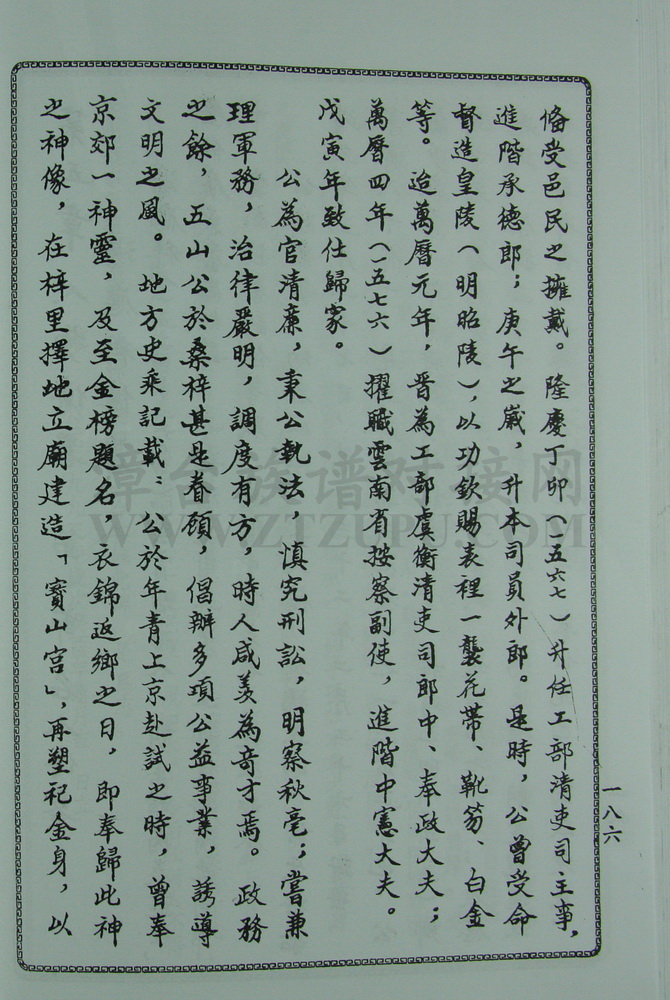 俻受邑民之擁戴。隆慶丁卯（一五六七）升任工部清吏司主事，
進階承德郎；庚午之歲，升本司員外郎。是時，公曾受命
督造皇陵（明昭陵），以功欽賜表裡一襲花帶、靴笏、白金
等。迨萬曆元年，晉為工部虞衡清吏司郎中、奉政大夫；
萬曆四年（一五七六）擢職雲南省按察副使，進階中憲大夫。
戊寅年致仕歸家。
公為官清廉，秉公執法，慎究刑訟，明察秋毫；嘗兼
理軍務，治律嚴明，調度有方，時人咸羨為奇才焉。政務
之餘，五山公於桑梓甚是眷顧，倡辦多項公益事業，誘導
文明之風。地方史乘記載：公於年青上京赴試之時，曾奉
京郊一神靈，及至金榜題名，衣錦返鄉之日，即奉歸此神
之神像，在梓里擇地立廟建造「寶山宮」，再塑祀金身，以
一八六
章台族谱对接网
WWW.ZTZUPU.COM